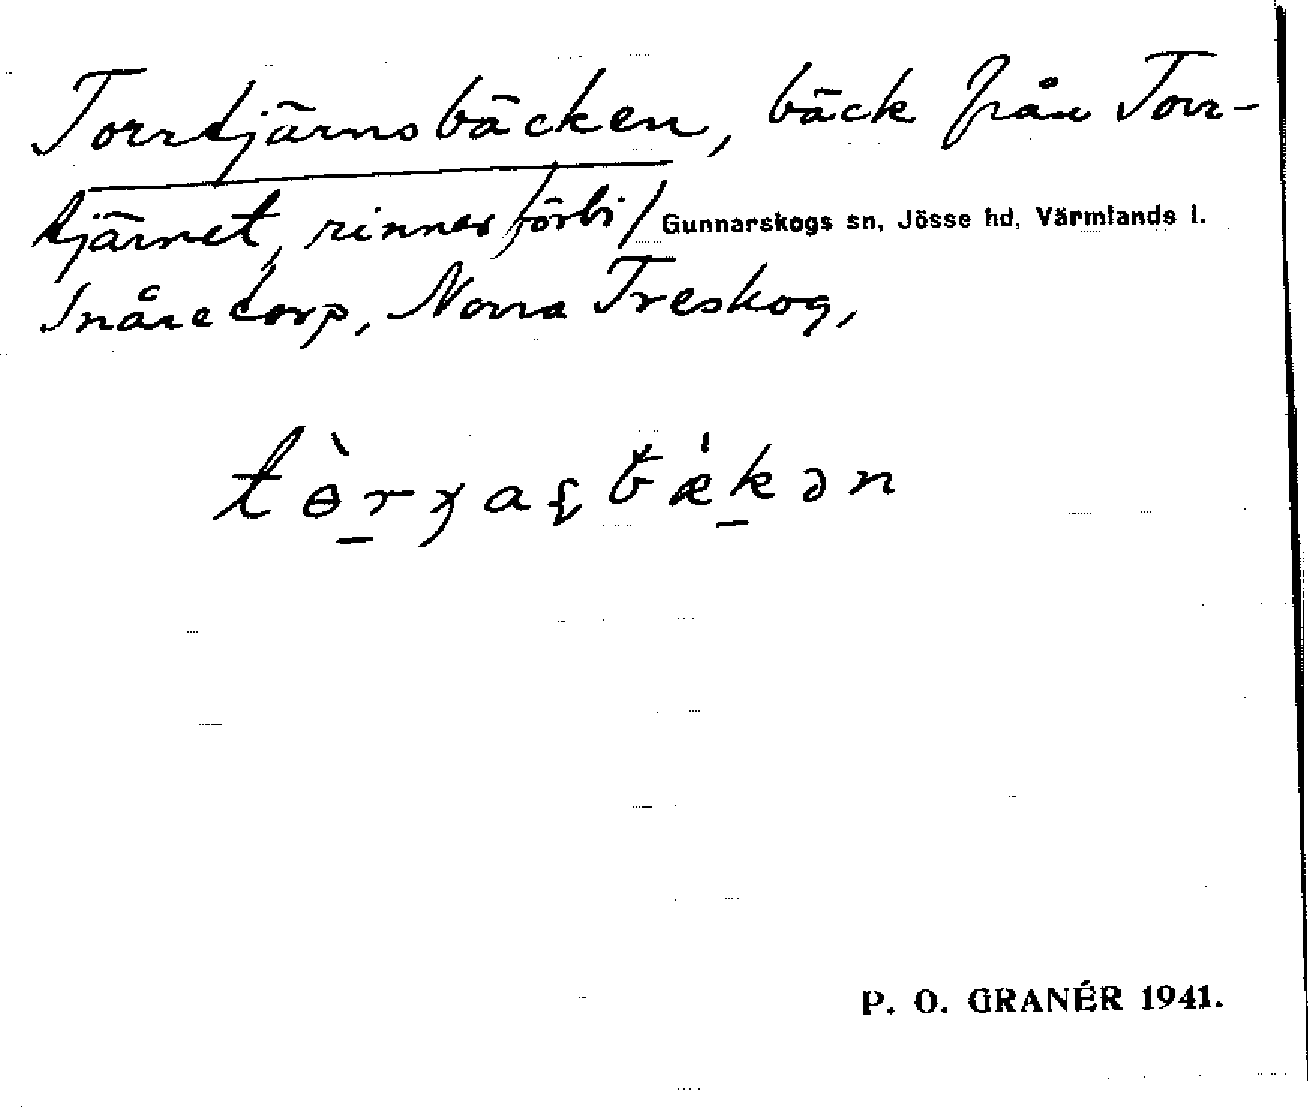 Torrtjärnsbäcken, bäck från Torr-
tjärnet, rinner förbi / Gunnarskogs sn, Jösse hd, Värmlands l.
Snåretorp, Norra Treskog,
P. O. GRANÉR 1941.